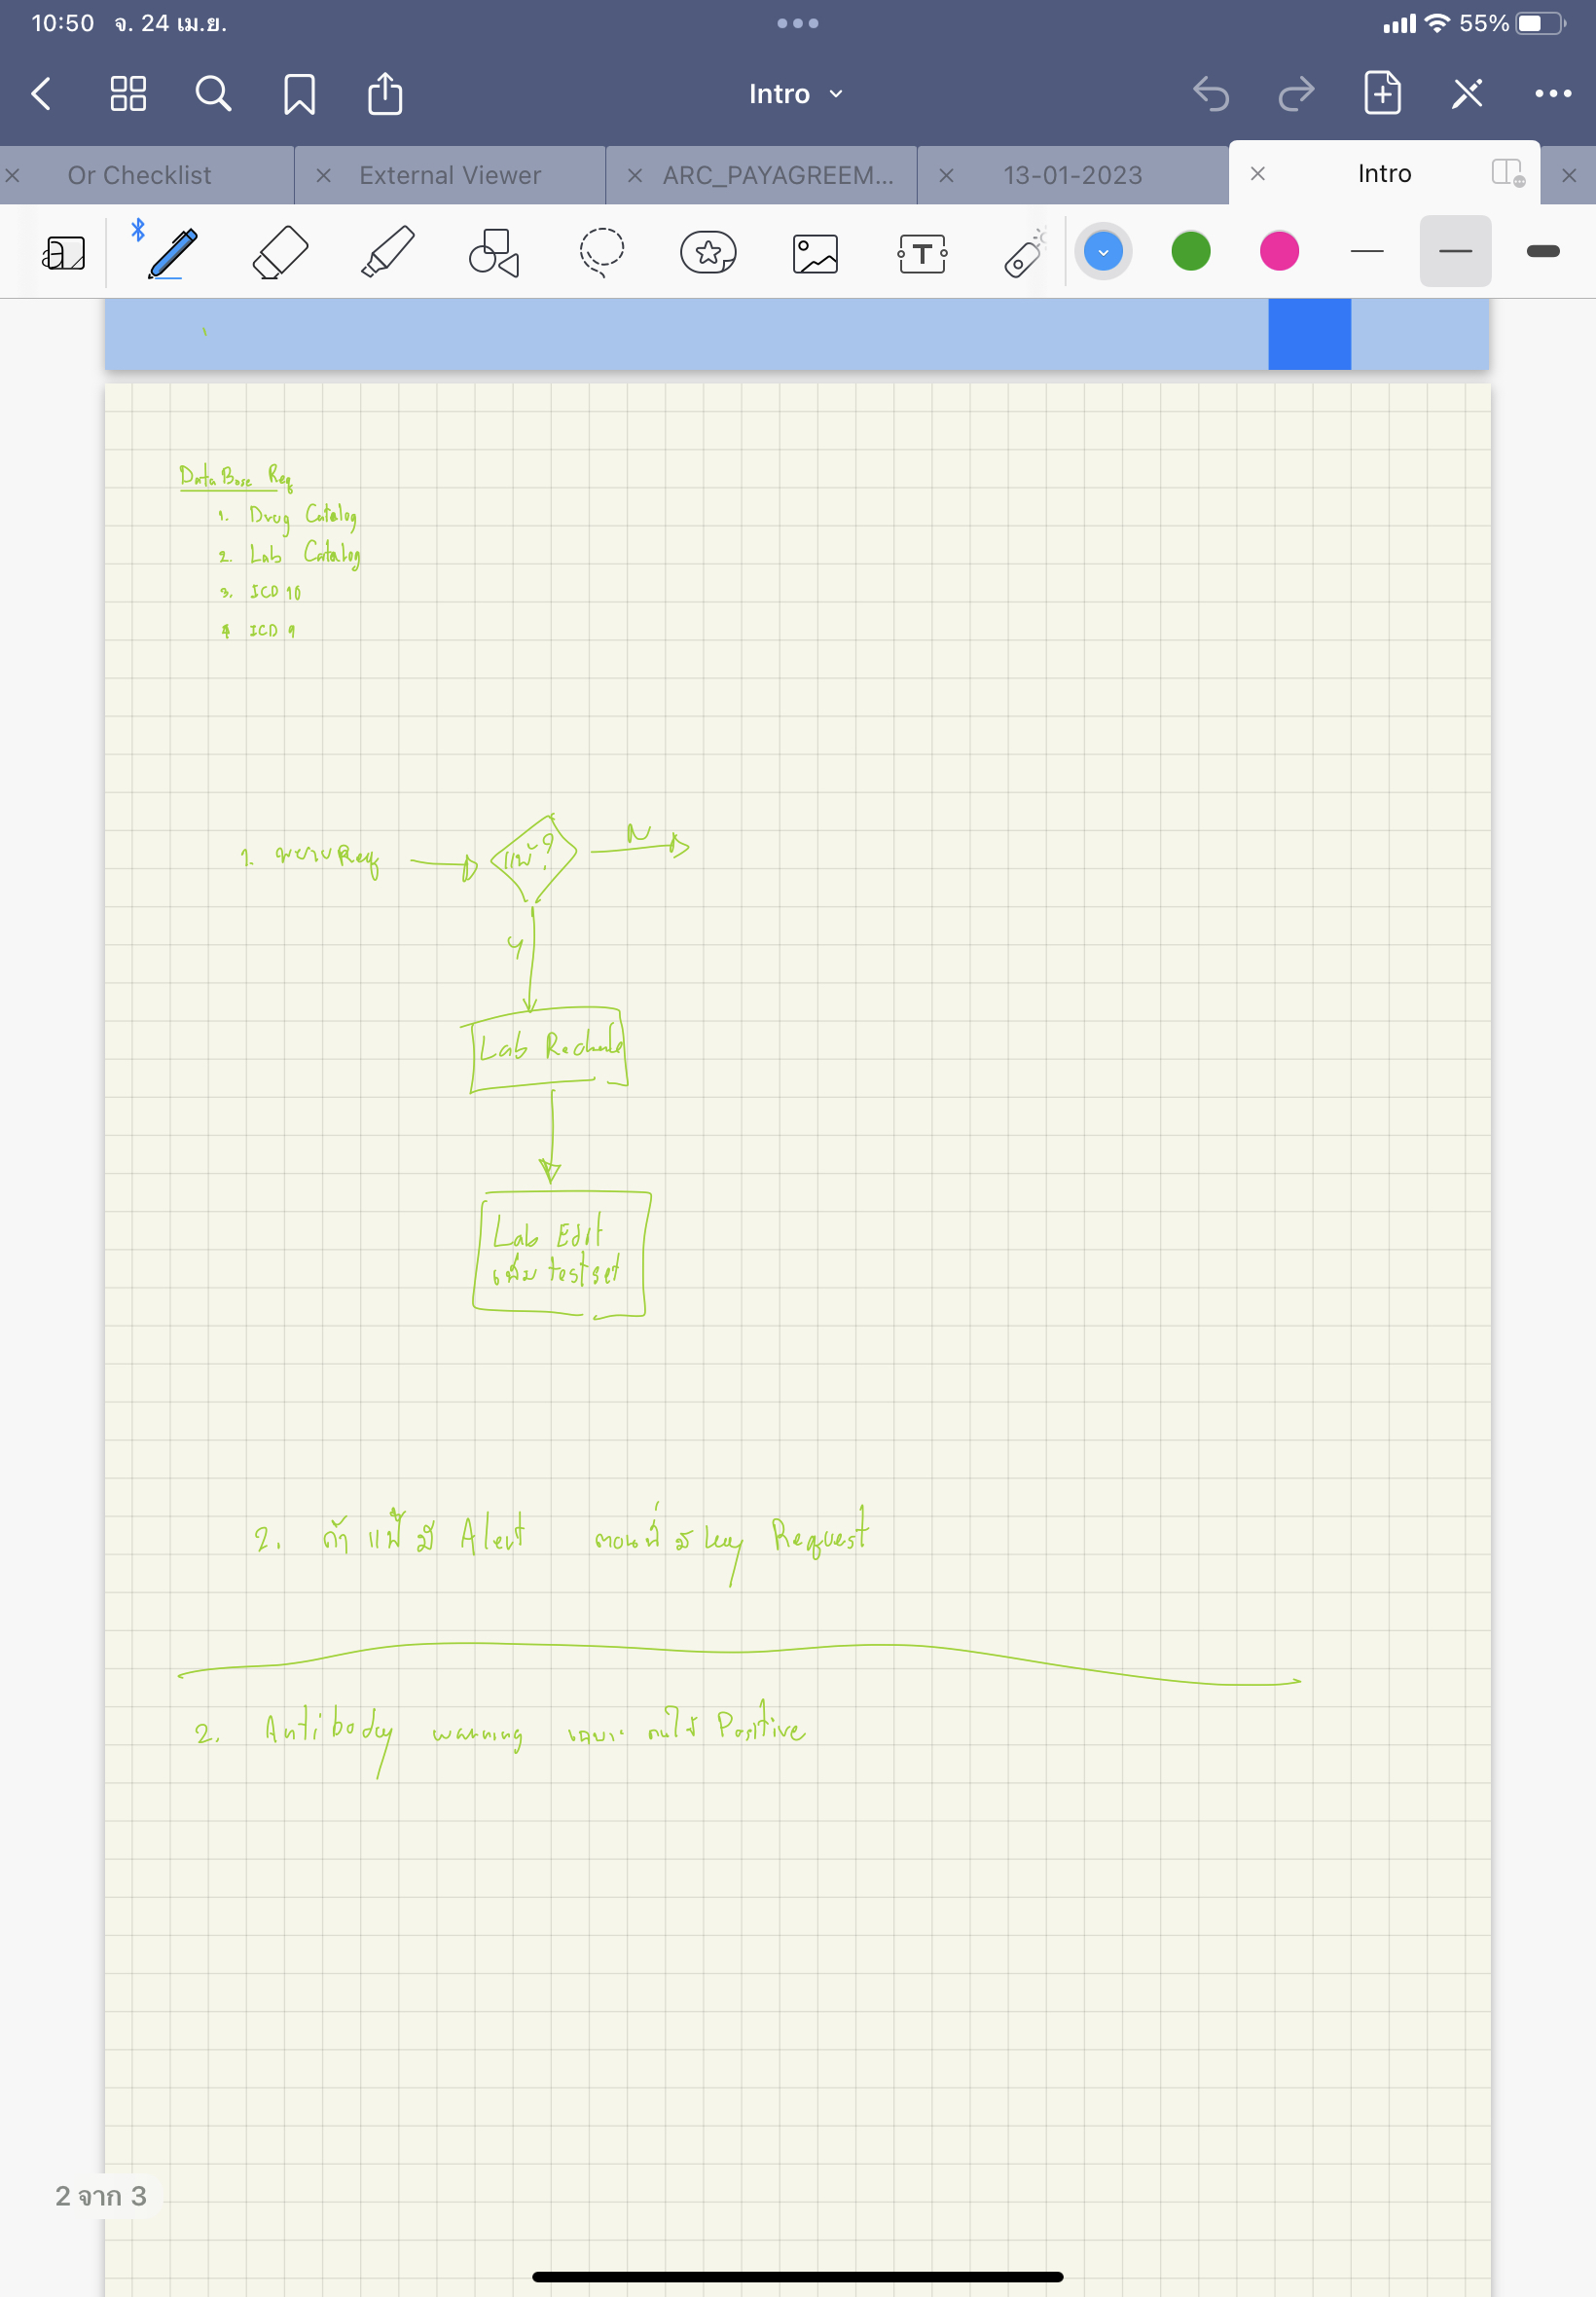 10:50 จ. 24 เม.ย.
55%
Intro
Or Checklist
External Viewer
ARC_PAYAGREEM...
13-01-2023
Intro
T
Data Base Req
1. Drug Catalog
2. Lab Catalog
3. ICD 10
4 ICD 9
1. พยาบ Req
แพ้?
N
Y
Lab
Lab Edit
เพิ่ม testset
2. ถ้า แพ้ มี Alert ตอนที่ มี Request
2. Antibody warning เฉพาะ คนไข้ Positive
2 จาก 3